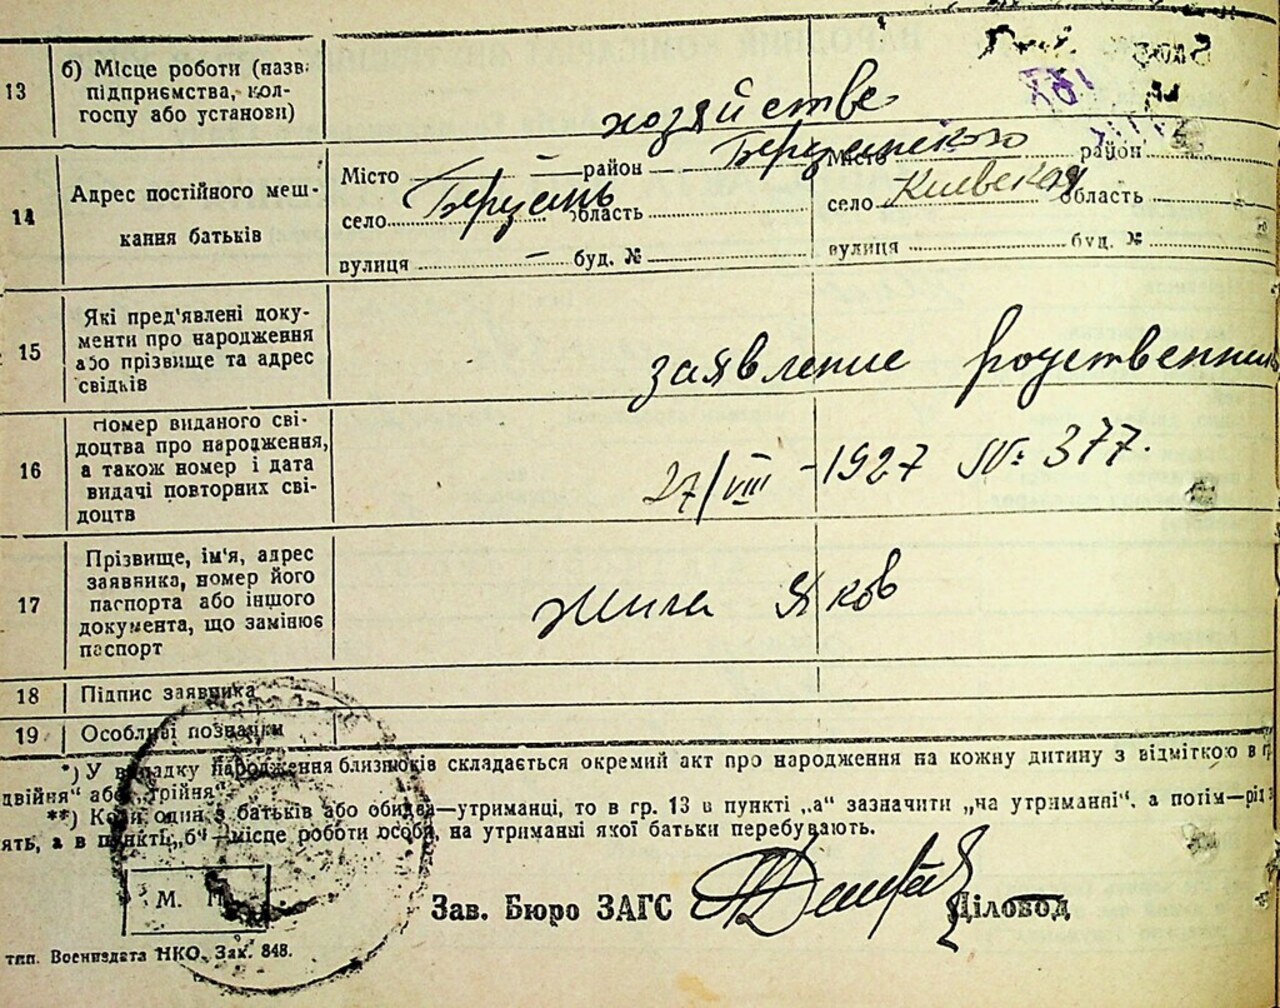 13
б) Місце роботи (назва
підприємства, кол-
госпу або установи)
хозяйстве
14
Адрес постійного меш-
кання батьків
Місто район Місто район
село Берцень область село Киевская область
вулиця — буд. № вулиця буд. №
15
Які пред'явлені доку-
менти про народження
або прізвище та адрес
свідків
заявление родственник
16
Номер виданого сві-
доцтва про народження,
а також номер і дата
видачі повторних сві-
доцтв
27/VIII - 1927 № 377.
17
Прізвище, ім'я, адрес
заявника, номер його
паспорта або іншого
документа, що замінює
паспорт
Жила Яков
18 Підпис заявника
19 Особливі позначки
*) У випадку народження близнюків складається окремий акт про народження на кожну дитину з відміткою в гр
двійня“ або „трійня“.
**) Коли один з батьків або обидва—утриманці, то в гр. 13 в пункті „а“ зазначити „на утриманні“, а потім—рід з
ять, а в пункті „б“—місце роботи особи, на утриманні якої батьки перебувають.
М. П.
Зав. Бюро ЗАГС Діловод
тип. Воениздата НКО. Зак. 848.